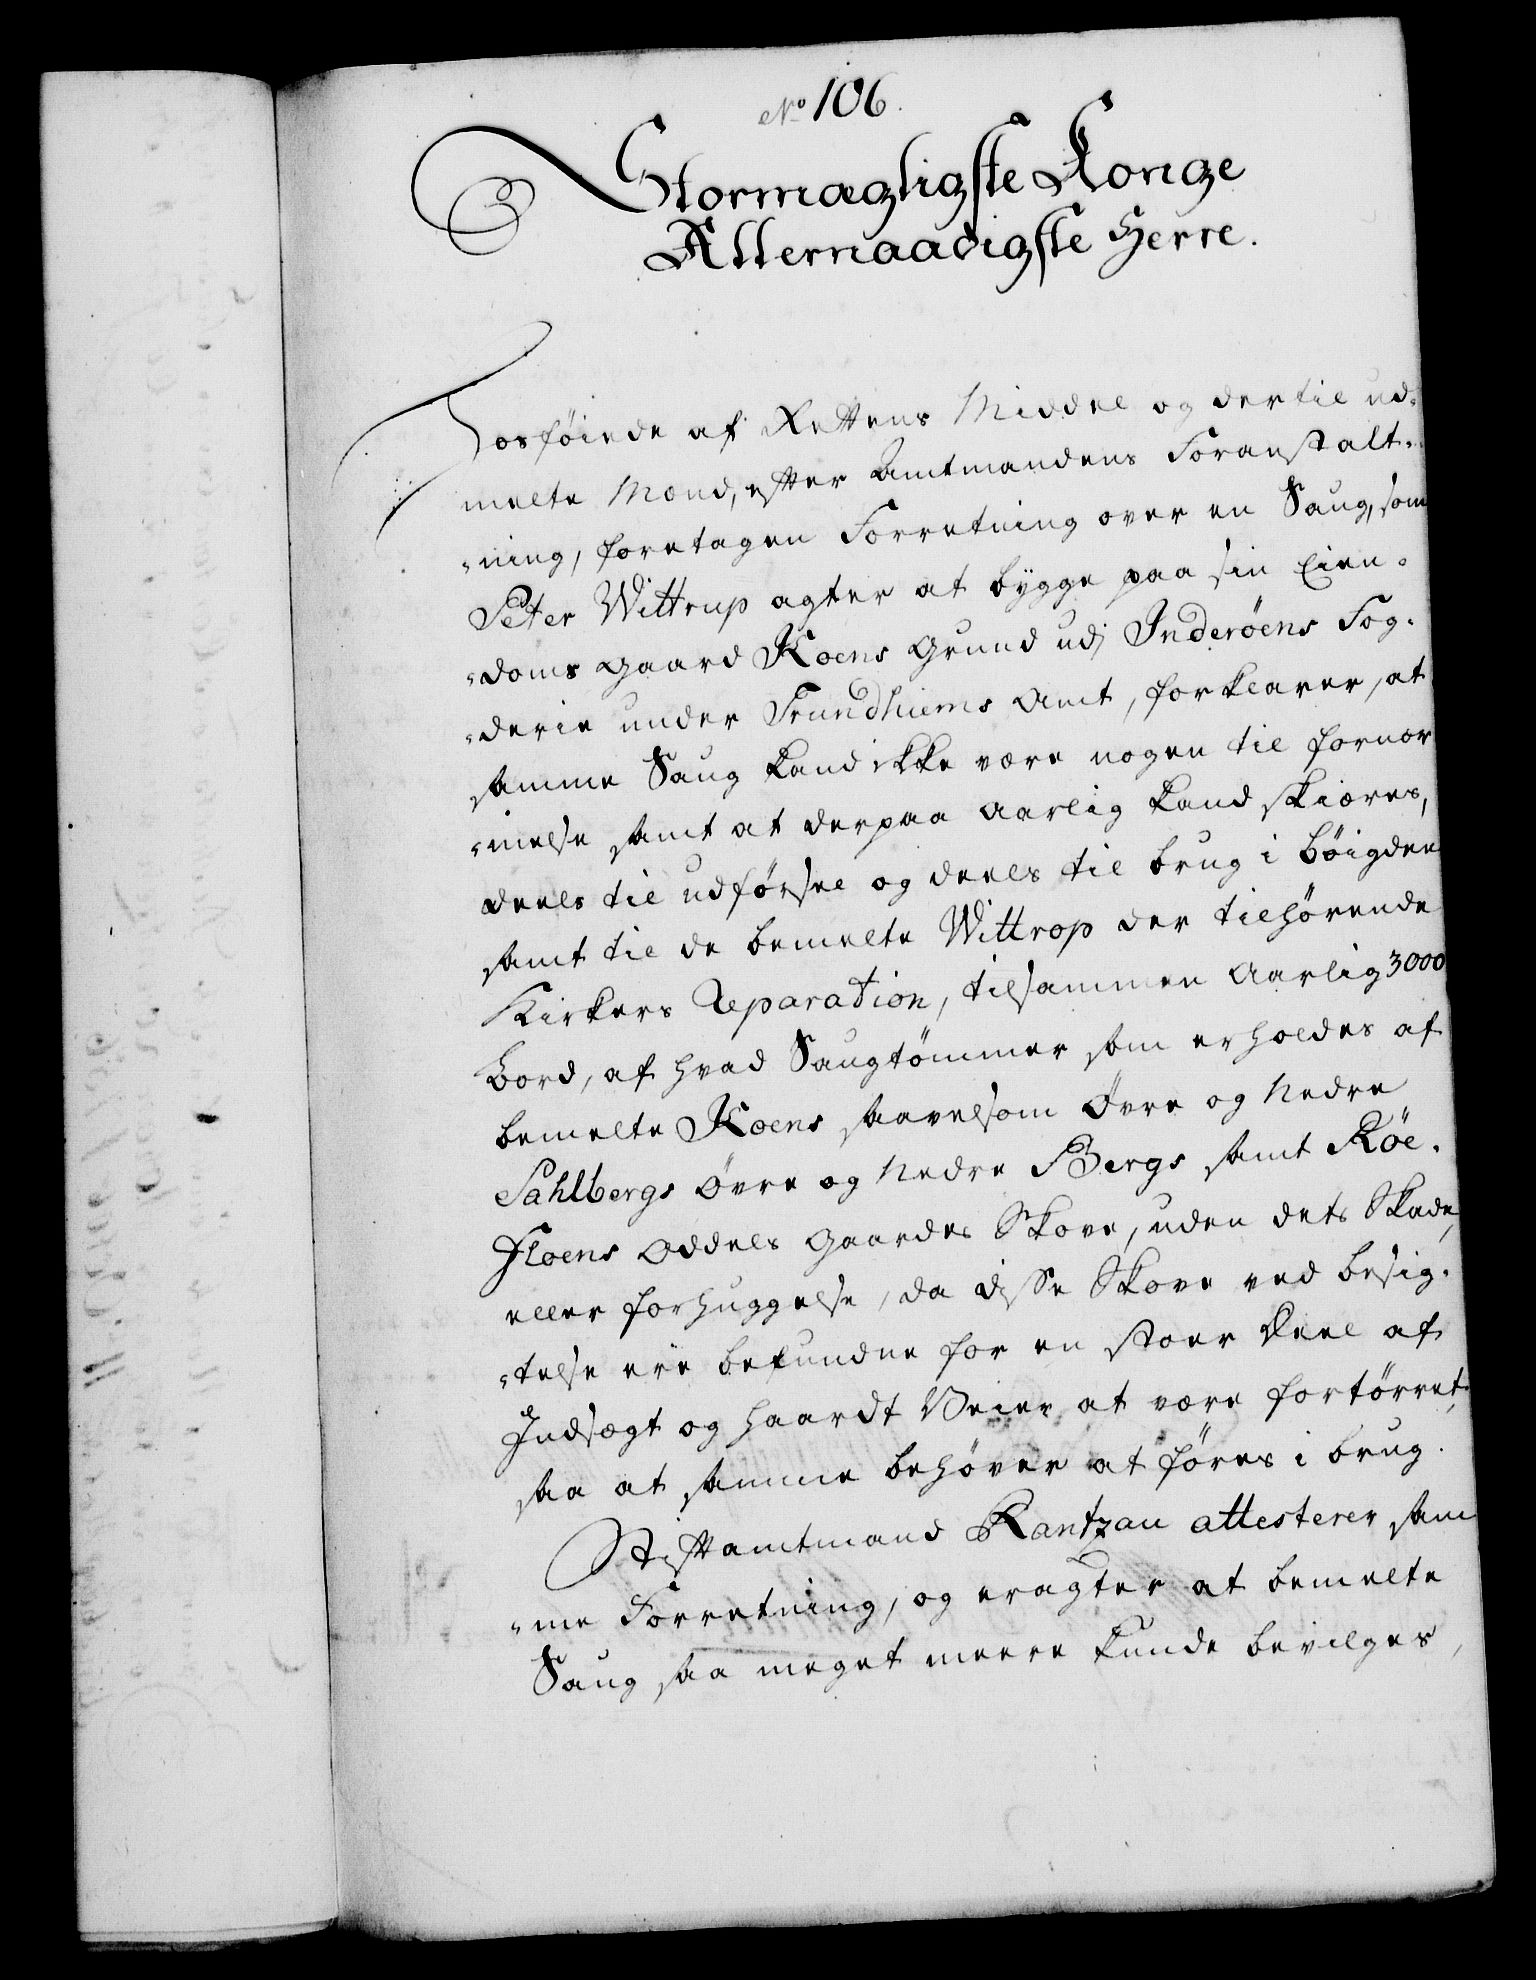 No 106.
Stormægtigste Konge
Allernaadigste Herre.
Hosføiede af Rettens Middel og dertil ud-
melte Mænd, efter Amtmandens Foranstalt-
-ning, foretagen Forretning over en Saug, som
Peter Wittrup agter at bygge paa sin Eien-
-doms Gaard Koens Grund udj Inderöens Fog-
-derie under Trundhiems Amt, forklarer, at
samme Saug kand ikke være nogen til fornær
-melse samt at derpaa aarlig kand skiæres,
deels til udførsel og deels til brug i bøigden
samt til de bemelte Wittrop der tilhørende
Kirkers Reparation, tilsammen aarlig 3000
Bord, af hvad Saugtømmer som erholdes af
bemelte Koens saavelsom Øvre og Nedre
Sahlbergs Øvre og Nedre Bergs samt Röe-
Floens Oddels Gaardes Skove, uden dets Skade,
eller forhuggelse, da disse Skove ved besig-
-telse ere befundne for en stoer Deel af
Indsægt og haardt Veier at være fortørret,
saa at samme behøver at føres i brug.
Stiftamtmand Rantzau attesterer sam
-me Forretning, og eragter at bemelte
Saug saa meget meere kunde bevilges,